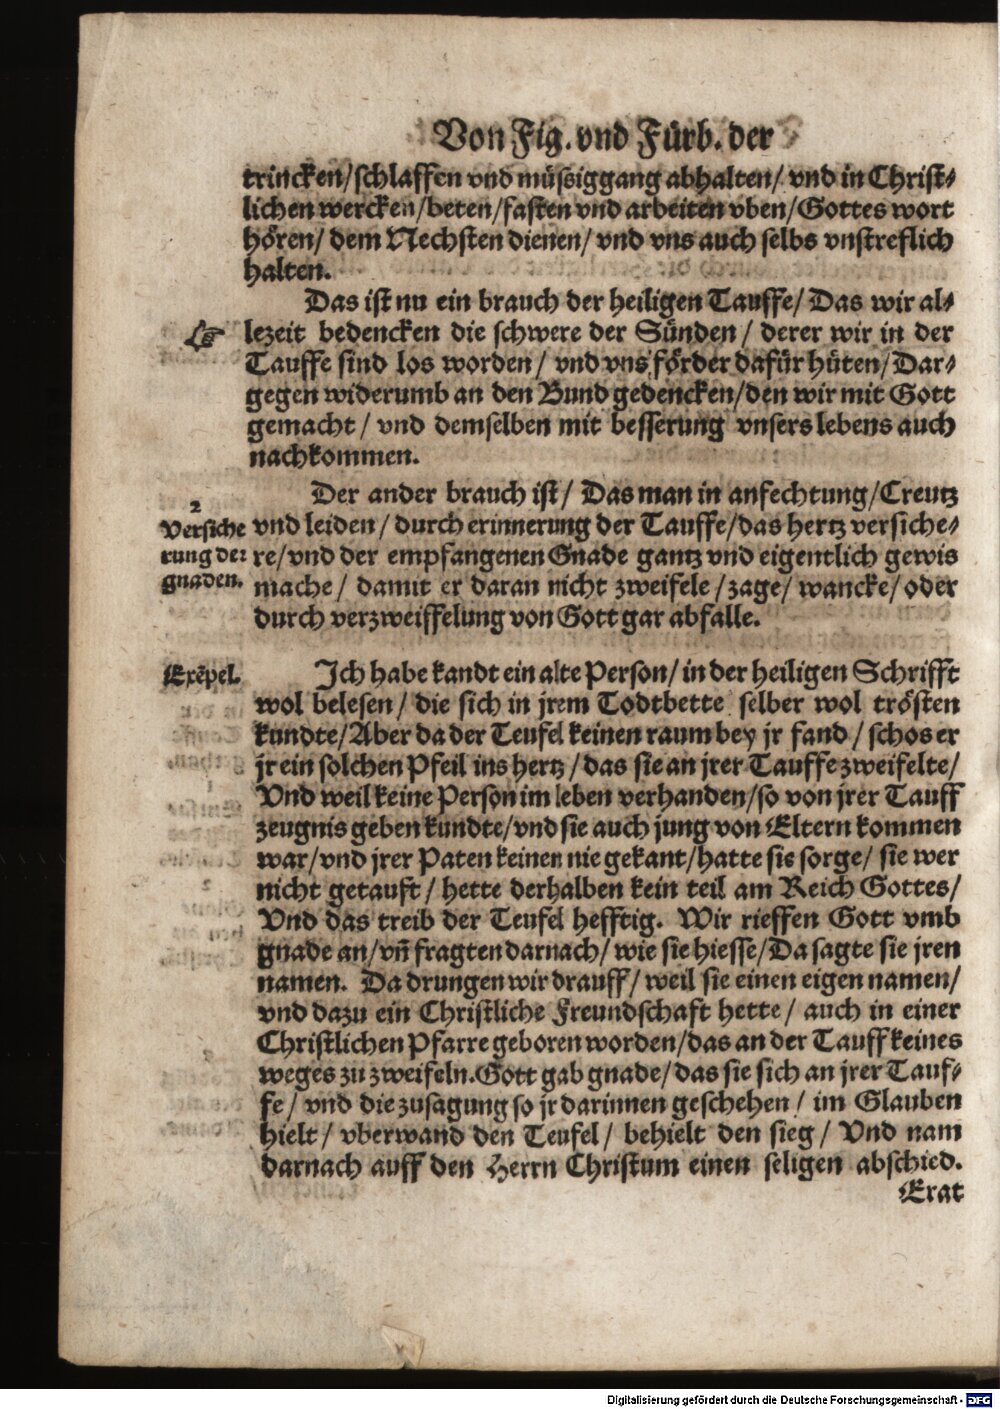 Von Fig. vnd Fürb. der
trincken/schlaffen vnd müssiggang abhalten/ vnd in Christ-
lichen wercken/beten/fasten vnd arbeiten vben/Gottes wort
hören/ dem Nechsten dienen/ vnd vns auch selbs vnstreflich
halten.
Das ist nu ein brauch der heiligen Tauffe/ Das wir al-
☞ lezeit bedencken die schwere der Sünden/ derer wir in der
Tauffe sind los worden/ vnd vns förder dafür hüten/ Dar-
gegen widerumb an den Bund gedencken/den wir mit Gott
gemacht/ vnd demselben mit besserung vnsers lebens auch
nachkommen.
2
Versiche
rung der
gnaden.
Der ander brauch ist/ Das man in anfechtung/Creutz
vnd leiden/ durch erinnerung der Tauffe/das hertz versiche-
re/vnd der empfangenen Gnade gantz vnd eigentlich gewis
mache/ damit er daran nicht zweifele/zage/ wancke/ oder
durch verzweiffelung von Gott gar abfalle.
Exẽpel.
Ich habe kandt ein alte Person/ in der heiligen Schrifft
wol belesen/ die sich in jrem Todtbette selber wol trösten
kundte/Aber da der Teufel keinen raum bey jr fand/ schos er
jr ein solchen Pfeil ins hertz/das sie an jrer Tauffe zweifelte/
Vnd weil keine Person im leben verhanden/so von jrer Tauff
zeugnis geben kundte/vnd sie auch jung von Eltern kommen
war/vnd jrer Paten keinen nie gekant/hatte sie sorge/ sie wer
nicht getauft/ hette derhalben kein teil am Reich Gottes/
Vnd das treib der Teufel hefftig. Wir rieffen Gott vmb
gnade an/vñ fragten darnach/ wie sie hiesse/Da sagte sie jren
namen. Da drungen wir drauff/ weil sie einen eigen namen/
vnd dazu ein Christliche Freundschaft hette/ auch in einer
Christlichen Pfarre geboren worden/das an der Tauff keines
weges zu zweifeln. Gott gab gnade/das sie sich an jrer Tauf-
fe/ vnd die zusagung so jr darinnen geschehen/ im Glauben
hielt/ vberwand den Teufel/ behielt den sieg/ Vnd nam
darnach auff den Herrn Christum einen seligen abschied.
Erat
Digitalisierung gefördert durch die Deutsche Forschungsgemeinschaft - DFG